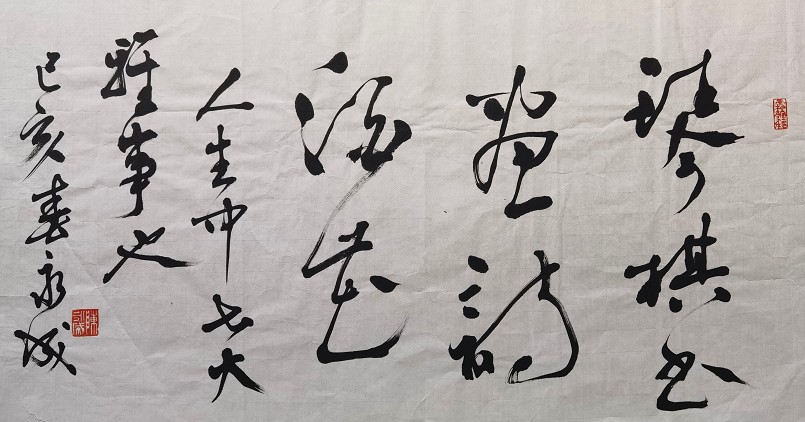 琴棋书
画诗
酒花
人生中七大
雅事也
己亥春永成